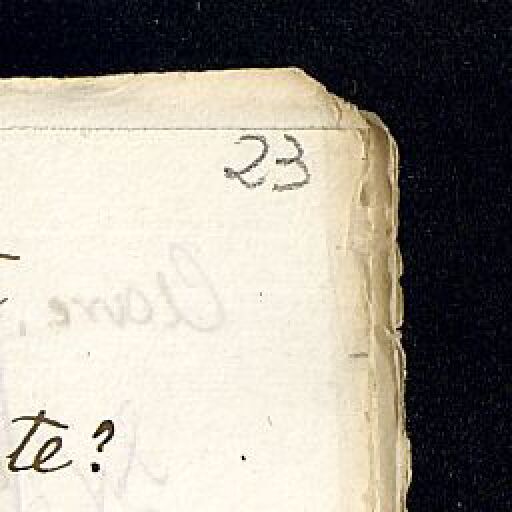 23
te?